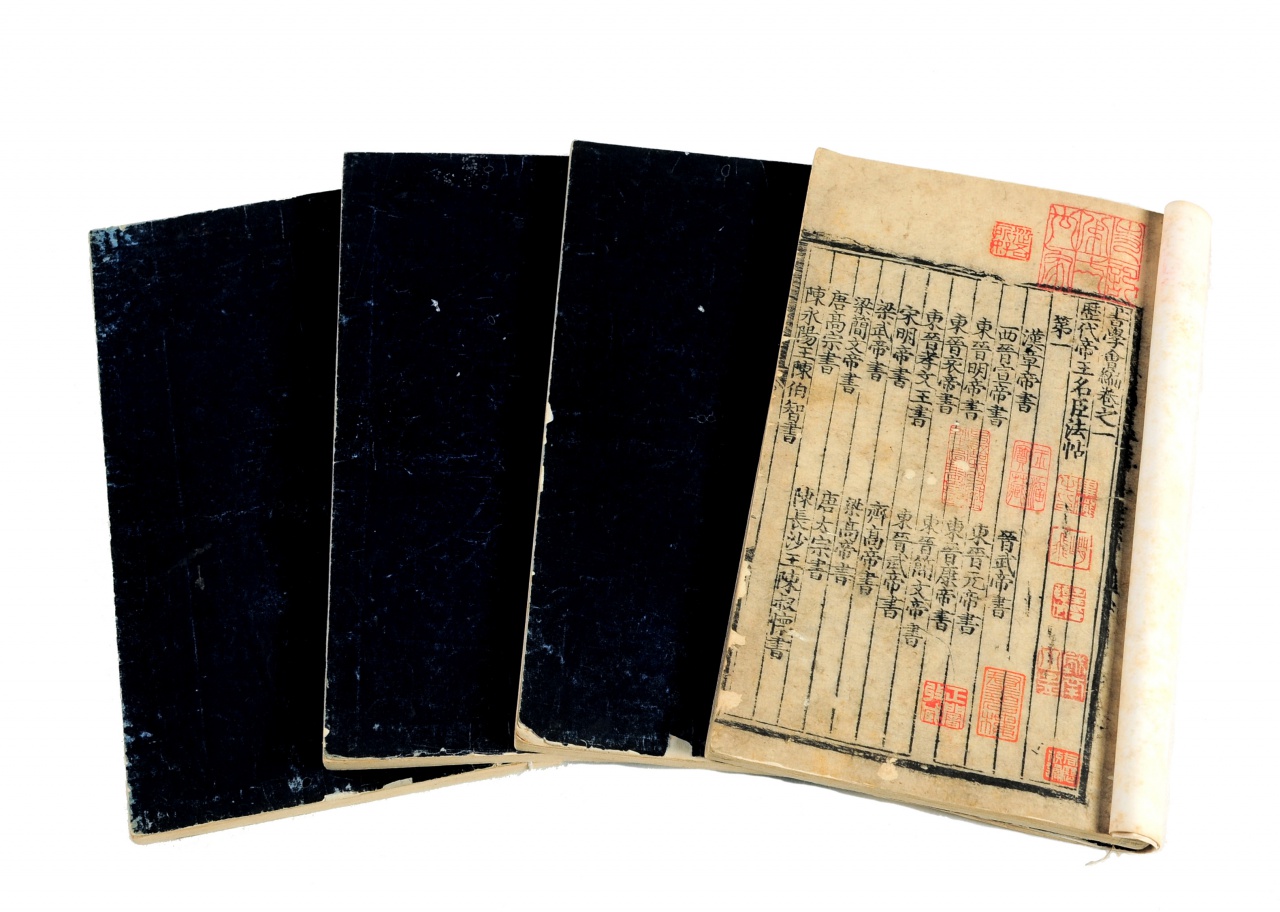 書學會編卷之一
歷代帝王名臣法帖
第一
漢章帝書 晉武帝書
西晉宣帝書 東晉元帝書
東晉明帝書 東晉康帝書
東晉哀帝書 東晉簡文帝書
東晉孝文王書 東晉武帝書
宋明帝書 齊高帝書
梁武帝書 梁高帝書
梁簡文帝書 唐太宗書
唐高宗書 陳長沙王陳叔懷書
陳永陽王陳伯智書